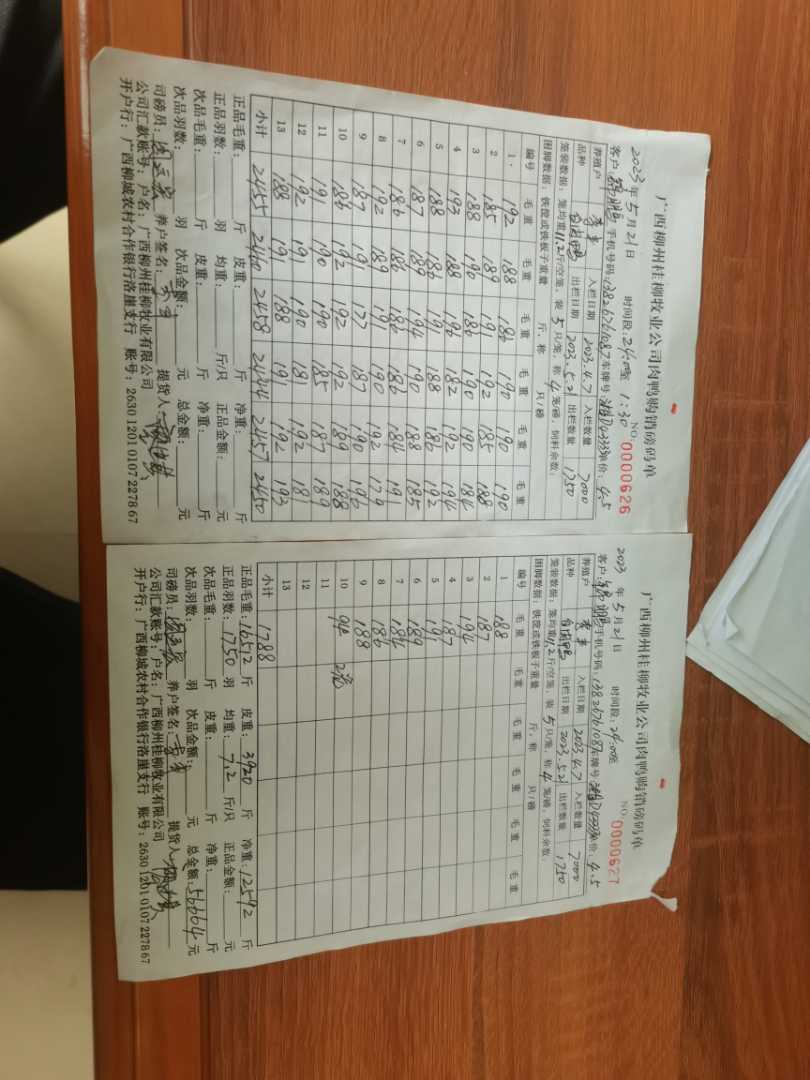 广西柳州桂柳牧业公司肉鸭购销磅码单
NO: 0000626
2023年5月21日 时间段: 24:00至1:30
客户: 手机号码: 13826761087 车牌号 单价: 4.5
养殖户 入栏日期 2023.4.7 入栏数量 7000
品种 出栏日期 2023.5.21 出栏数量 1750
笼装数据: 笼均重11.2斤/空笼, 装5只/笼, 称4笼/磅, 饲料余数:
困脚数据: 铁筐或铁板子重量 斤, 称 只/磅
编号 毛重 毛重 毛重 毛重 毛重 毛重
1 192 188 186 190 190 190
2 185 189 191 192 185 188
3 188 190 186 190 190 184
4 193 188 196 182 192 194
5 188 186 191 188 186 192
6 187 189 194 190 188 185
7 186 186 186 186 184 191
8 192 189 191 190 192 179
9 187 191 177 187 190 196
10 186 192 192 192 189 188
11 191 190 190 185 187 189
12 192 191 190 181 192 181
13 188 191 188 191 192 193
小计 2455 2460 2458 2444 2457 2450
正品毛重: 斤 皮重: 斤 净重: 斤
正品羽数: 羽 均重: 斤/只 正品金额: 元
次品毛重: 斤 皮重: 斤 净重: 斤
次品羽数: 羽 次品金额: 元 总金额: 元
司磅员: 养户签名: 提货人:
公司汇款账号: 户名: 广西柳州桂柳牧业有限公司
开户行: 广西柳城农村合作银行洛崖支行 账号: 2630 1201 0107 2278 67
广西柳州桂柳牧业公司肉鸭购销磅码单
NO: 0000627
2023年5月21日 时间段: 24:00至
客户: 手机号码: 13826761087 车牌号 单价: 4.5
养殖户 入栏日期 2023.4.7 入栏数量 7000
品种 出栏日期 2023.5.21 出栏数量 1750
笼装数据: 笼均重11.2斤/空笼, 装5只/笼, 称4笼/磅, 饲料余数:
困脚数据: 铁筐或铁板子重量 斤, 称 只/磅
编号 毛重 毛重 毛重 毛重 毛重 毛重
1 188
2 187
3 194
4 187
5 191
6 189
7 184
8 186
9 188
10 94 2笼
11
12
13
小计 1788
正品毛重: 16512斤 皮重: 3920斤 净重: 12592斤
正品羽数: 1750羽 均重: 7.2斤/只 正品金额: 元
次品毛重: 斤 皮重: 斤 净重: 斤
次品羽数: 羽 次品金额: 元 总金额: 56664元
司磅员: 养户签名: 提货人:
公司汇款账号: 户名: 广西柳州桂柳牧业有限公司
开户行: 广西柳城农村合作银行洛崖支行 账号: 2630 1201 0107 2278 67